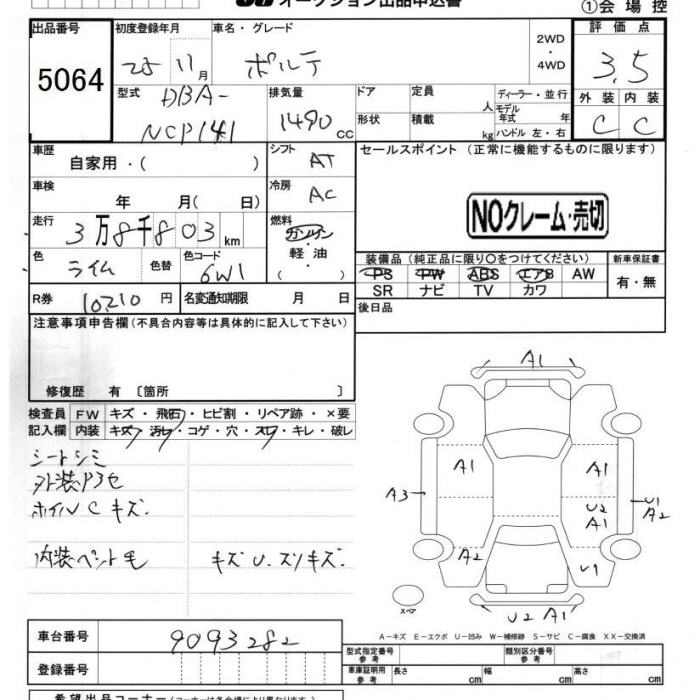 オークション出品申込書
①会場控
出品番号 初度登録年月 車名・グレード 2WD・4WD 評価点
5064 25 11月 ポルテ 3.5
型式 DBA-NCP141 排気量 1490 cc ドア 定員 人 ディーラー・並行 外装 内装
形状 積載 kg モデル年式 年 ハンドル 左・右 C C
車歴 自家用・( ) シフト AT セールスポイント (正常に機能するものに限ります)
車検 年 月( 日) 冷房 AC
NOクレーム・売切
走行 3万8千803km 燃料 ガソリン 軽油 ( )
色 ライム 色替 色コード 6W1
装備品(純正品に限り○をつけてください) 新車保証書
PS PW ABS エアB AW 有・無
SR ナビ TV カワ
R券 10210円 名変通知期限 月 日 後日品
注意事項申告欄(不具合内容等は具体的に記入して下さい)
修復歴 有〔箇所 〕
検査員 FW キズ・飛石・ヒビ割・リペア跡・×要
記入欄 内装 キズ・汚レ・コゲ・穴・スレ・キレ・破レ
シートシミ
ホイルC キズ.
キズ U. スリキズ.
A1
A1 A1
A3 U2 A1 U1 A2
A2 U1
スペア
U2 A1
A-キズ E-エクボ U-凹み W-補修跡 S-サビ C-腐食 XX-交換済
車台番号 9093282
型式指定番号 参考 類別区分番号 参考
登録番号 車庫証明用 参考 長さ cm 幅 cm 高さ cm
希望出品コーナー